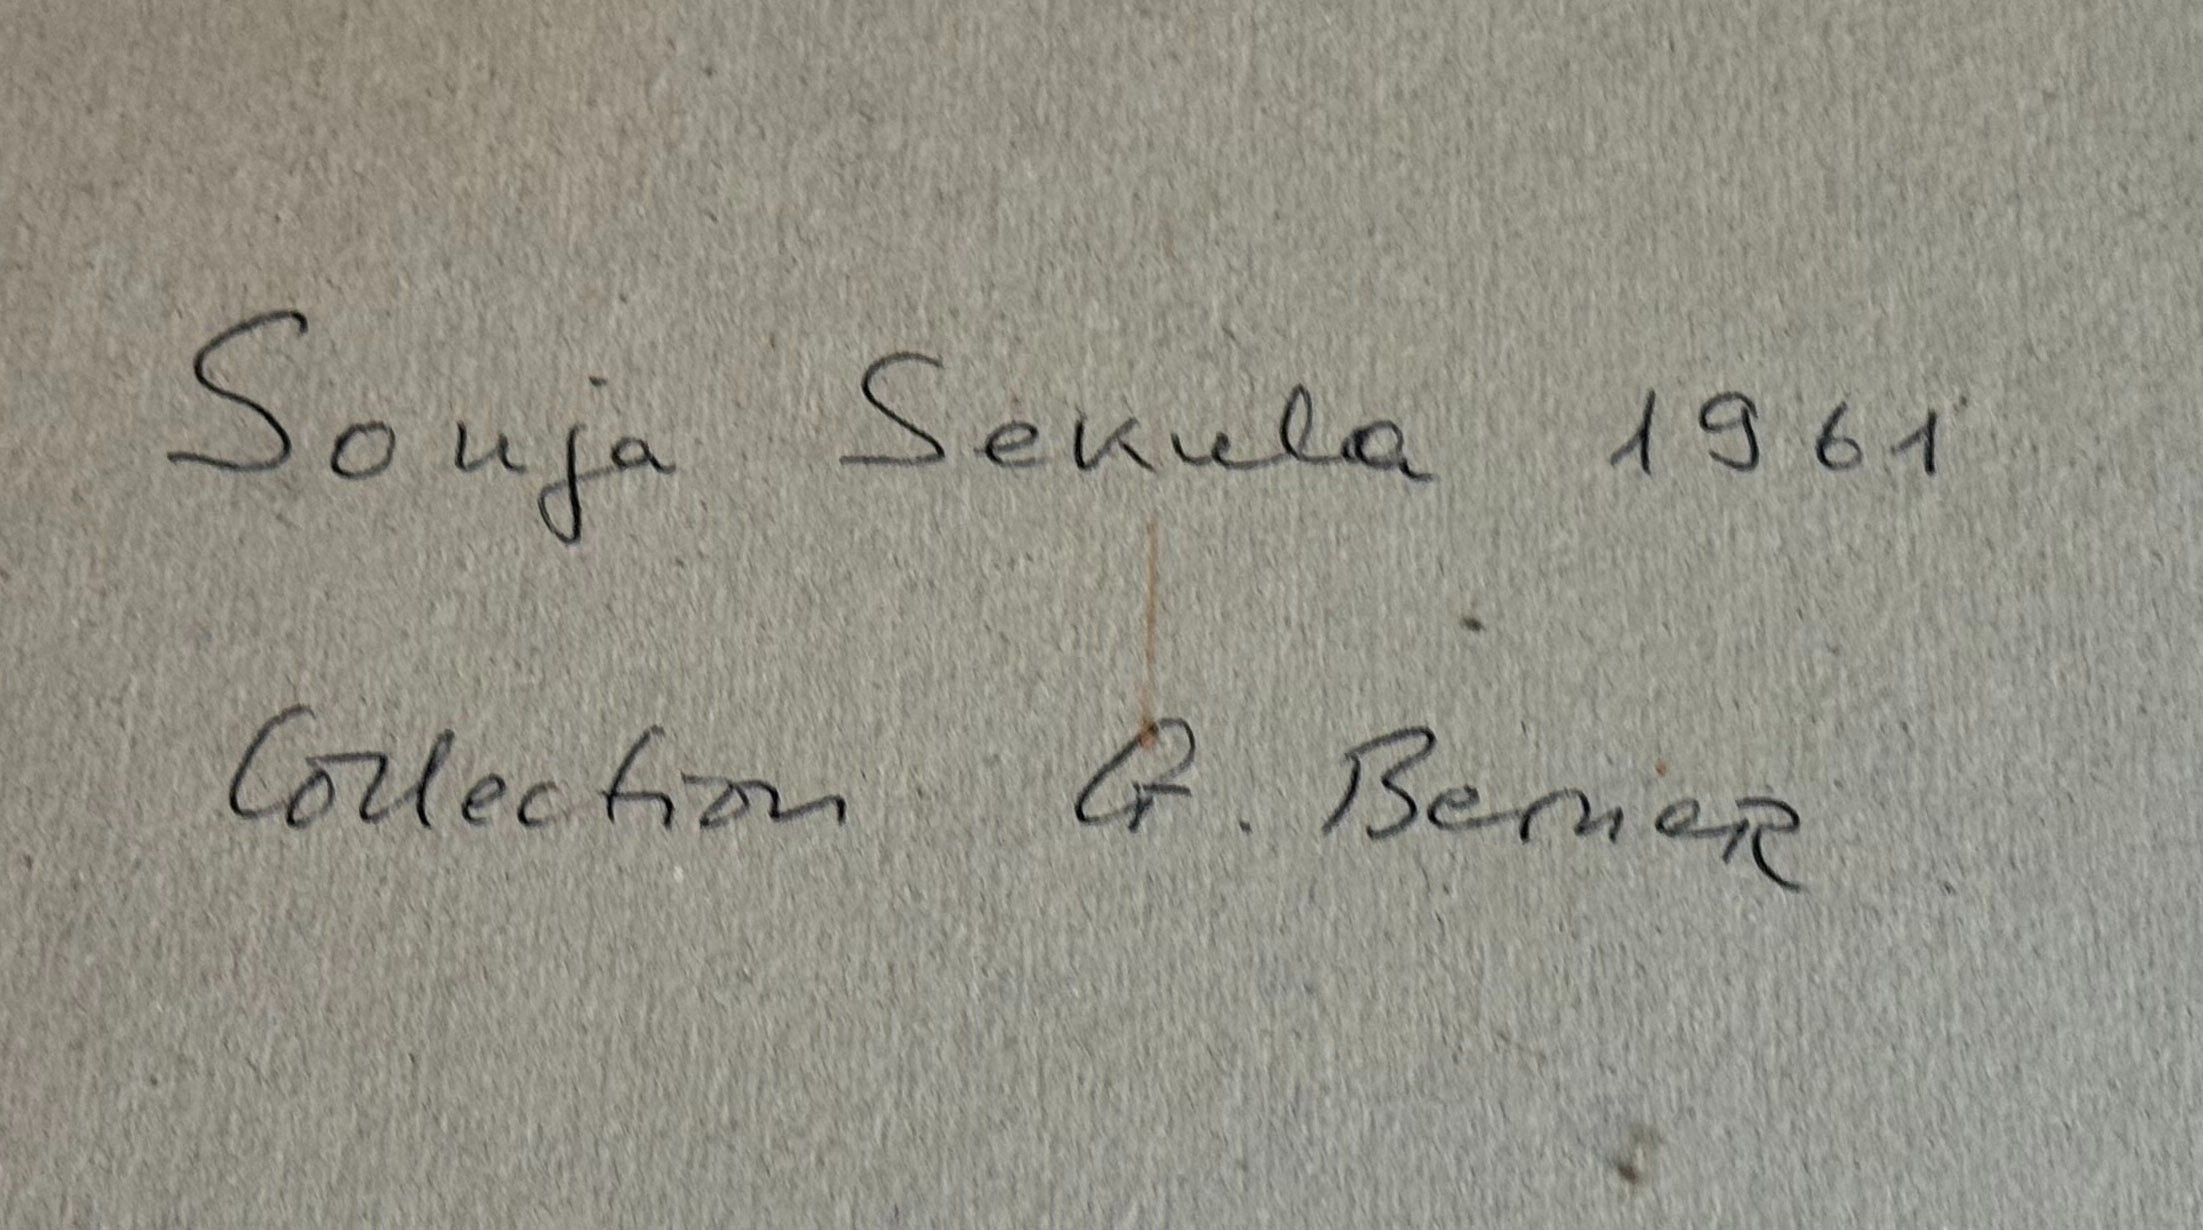 Sonja Sekula 1961
Collection G. Berner